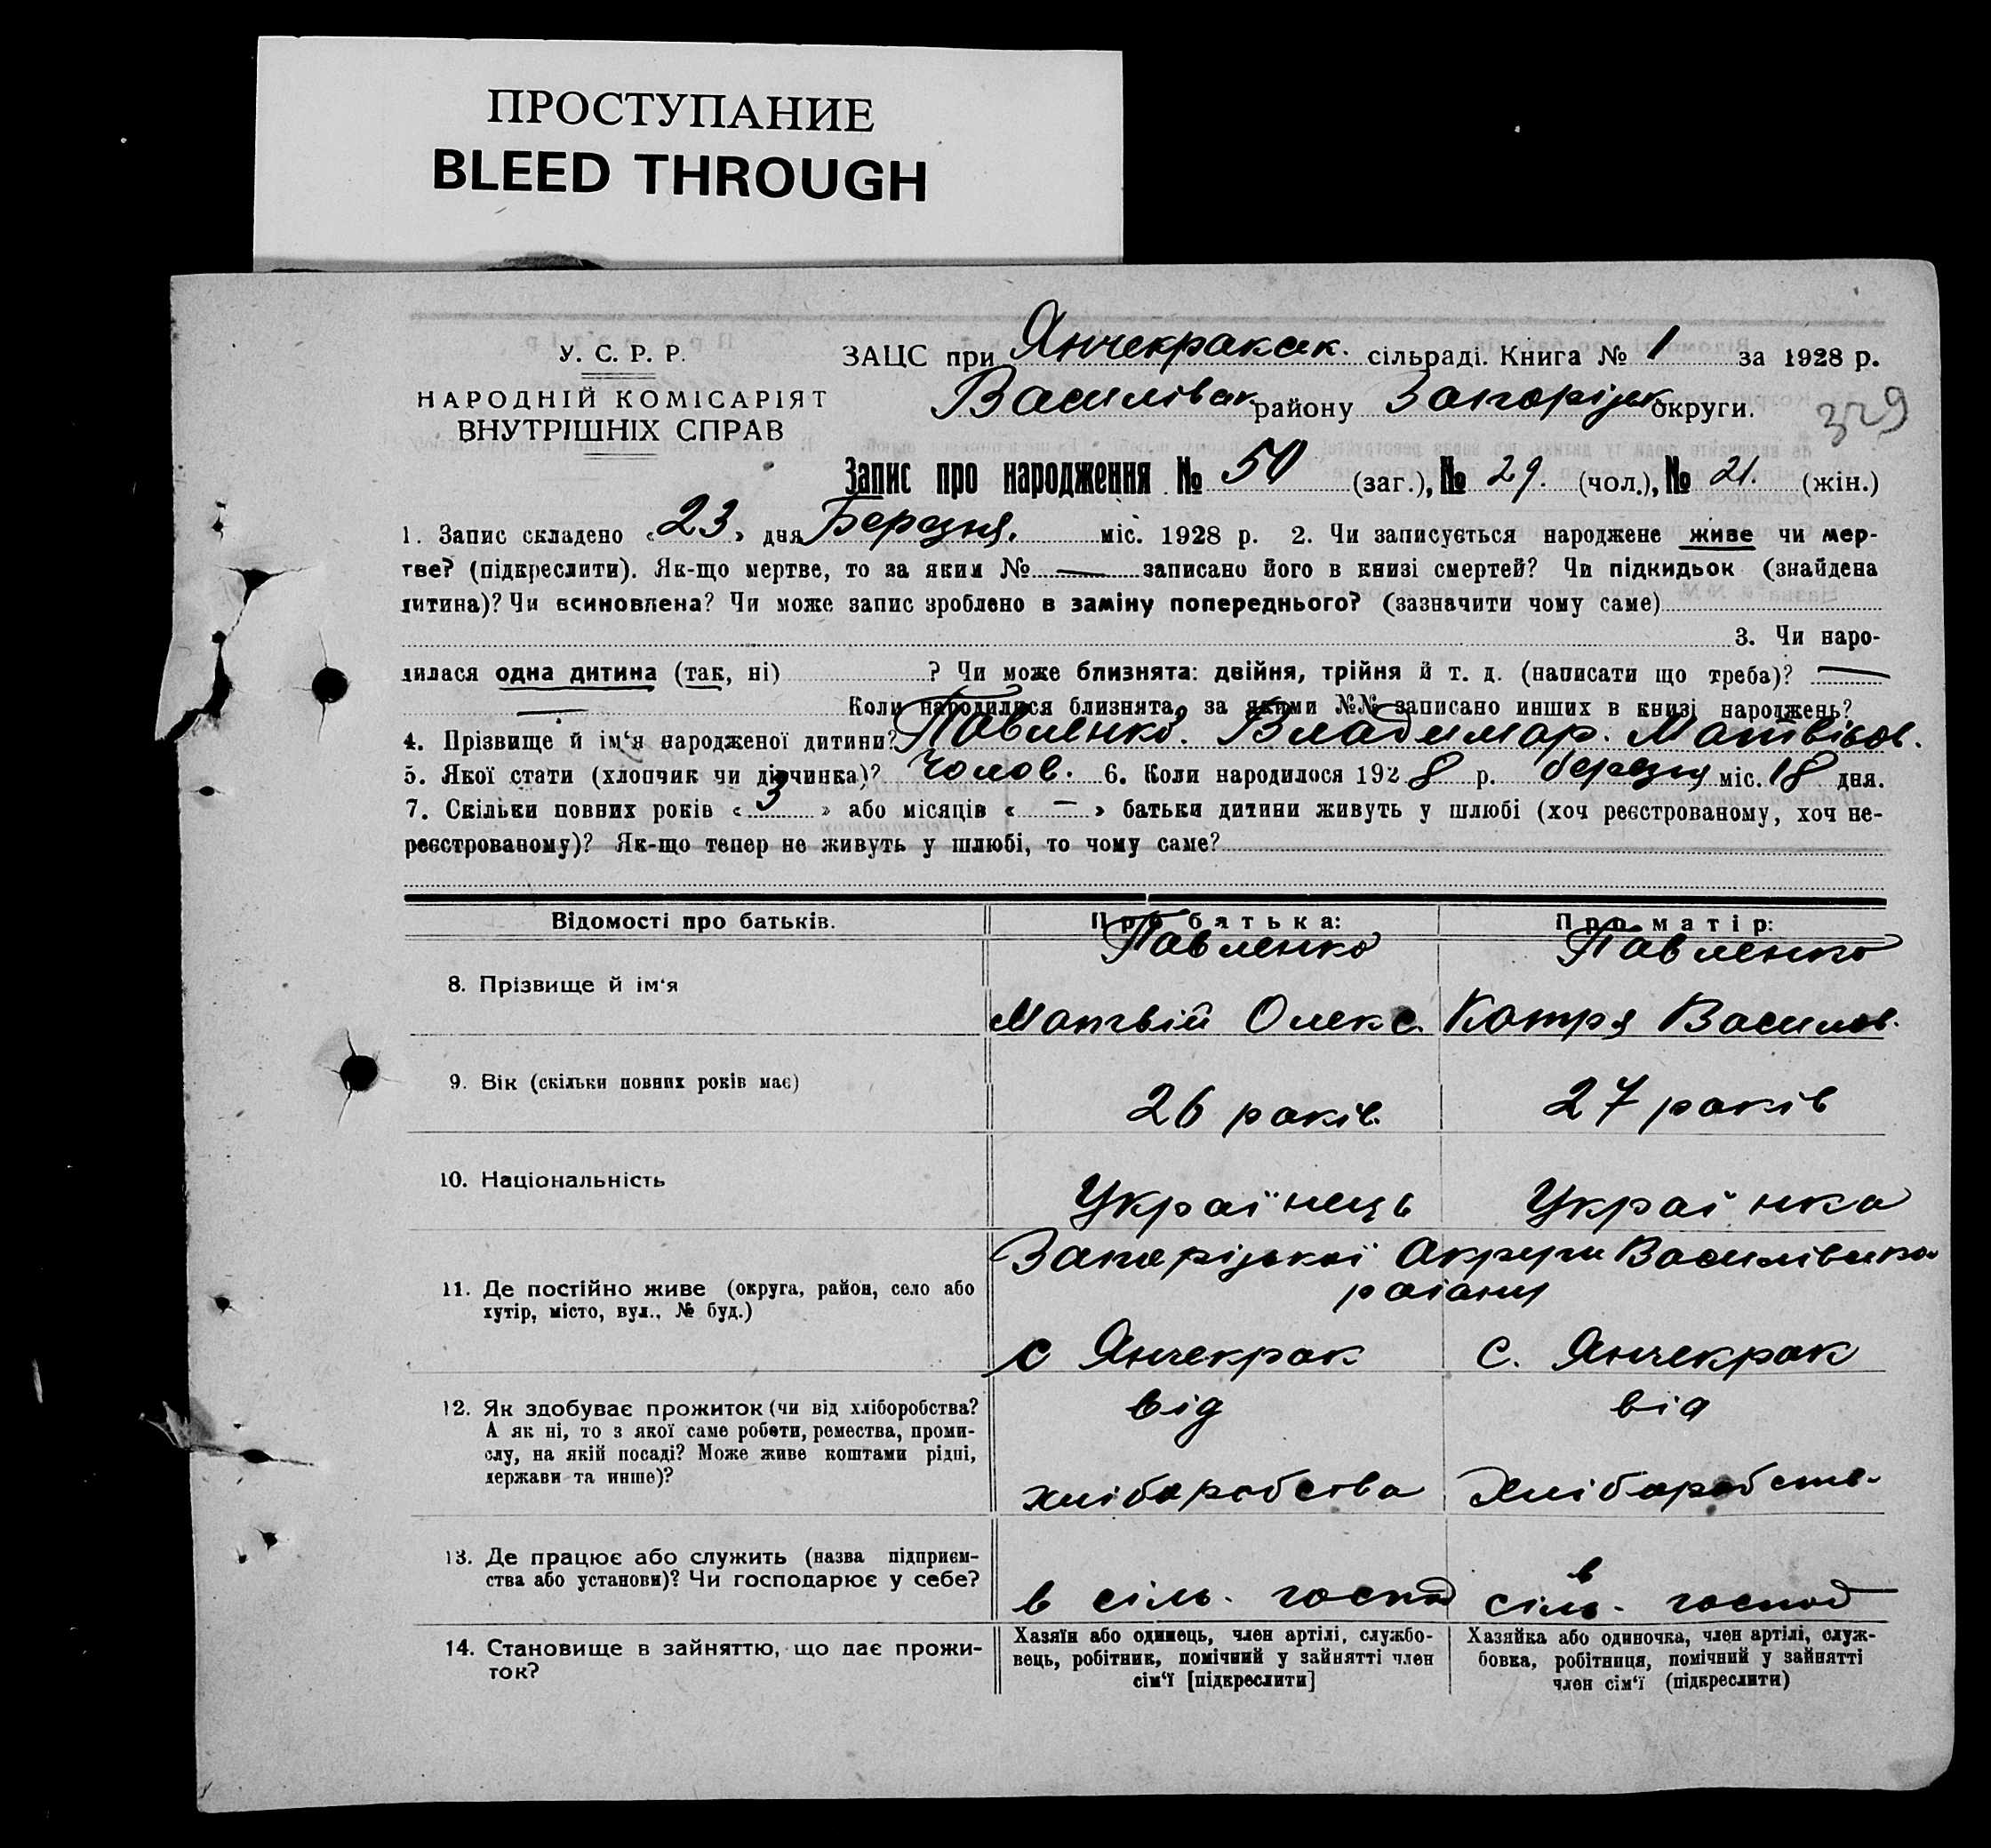 ПРОСТУПАНИЕ
BLEED THROUGH
У. С. Р. Р.
НАРОДНІЙ КОМІСАРІЯТ
ВНУТРІШНІХ СПРАВ
ЗАЦС при Янчекракск. сільраді. Книга № 1 за 1928 р.
Василівськ району Запоріжськ округи.
329
Запис про народження № 50 (заг.), № 29. (чол.), № 21. (жін.)
1. Запис складено «23» дня Березня. міс. 1928 р. 2. Чи записується народжене живе чи мер-
тве? (підкреслити). Як-що мертве, то за яким № — записано його в книзі смертей? Чи підкидьок (знайдена
дитина)? Чи всиновлена? Чи може запис зроблено в заміну попереднього? (зазначити чому саме)
3. Чи наро-
дилася одна дитина (так, ні) ? Чи може близнята: двійня, трійня й т. д. (написати що треба)? —
— Коли народилися близнята, за якими №№ записано инших в книзі народжень?
4. Прізвище й ім‘я народженої дитини? Павленко. Владимар. Матвієв.
5. Якої стати (хлопчик чи дівчинка)? Чолов. 6. Коли народилося 1928 р. березня міс. 18 дня.
7. Скільки повних років «3» або місяців «—» батьки дитини живуть у шлюбі (хоч реєстрованому, хоч не-
реєстрованому)? Як-що тепер не живуть у шлюбі, то чому саме?
Відомості про батьків. Про батька: Про матір:
Павленко Павленко
8. Прізвище й ім‘я
Матвій Олекс. Катря Васильов.
9. Вік (скільки повних років має)
26 років. 27 років
10. Національність
Українець Українка
Запоріжської Округи Василівська
раіону
11. Де постійно живе (округа, район, село або
хутір, місто, вул., № буд.)
с Янчекрак с. Янчекрак
12. Як здобуває прожиток (чи від хліборобства?
А як ні, то з якої саме роботи, ремества, проми-
слу, на якій посаді? Може живе коштами рідні,
держави та инше)?
від від
хліборобства Хліборобств.
13. Де працює або служить (назва підприєм-
ства або установи)? Чи господарює у себе?
в сіль. господ в сіль. господ
14. Становище в зайняттю, що дає прожи-
ток?
Хазяїн або одинець, член артілі, службо-
вець, робітник, помічний у зайнятті член
сім‘ї [підкреслити]
Хазяйка або одиночка, член артілі, служ-
бовка, робітниця, помічний у зайнятті
член сім‘ї (підкреслити)